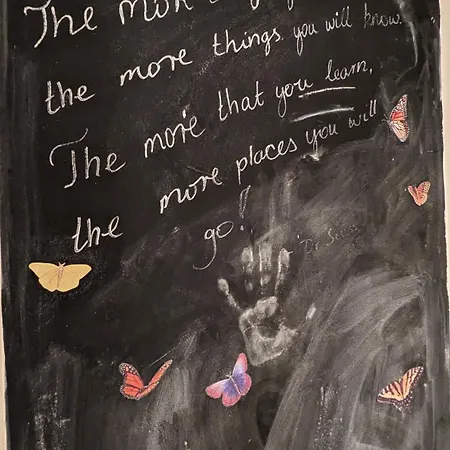 The more
the more things you will know.
The more that you learn,
the more places you will
go!
Dr. Seuss